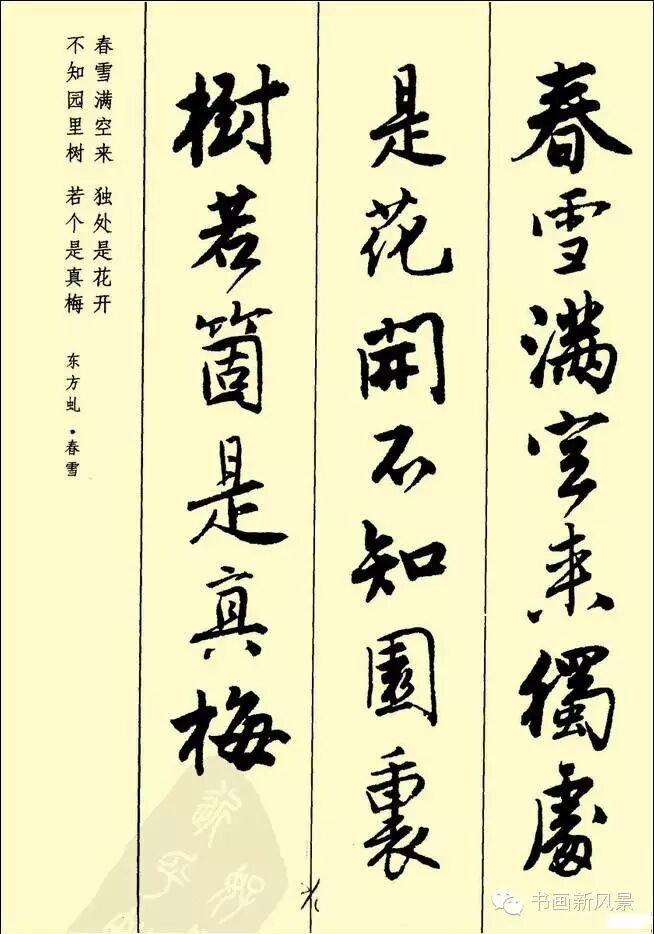 春雪满空来獨處
是花開不知園裏
樹若箇是真梅
春雪满空来 独处是花开
不知园里树 若个是真梅
东方虬·春雪
书画新风景